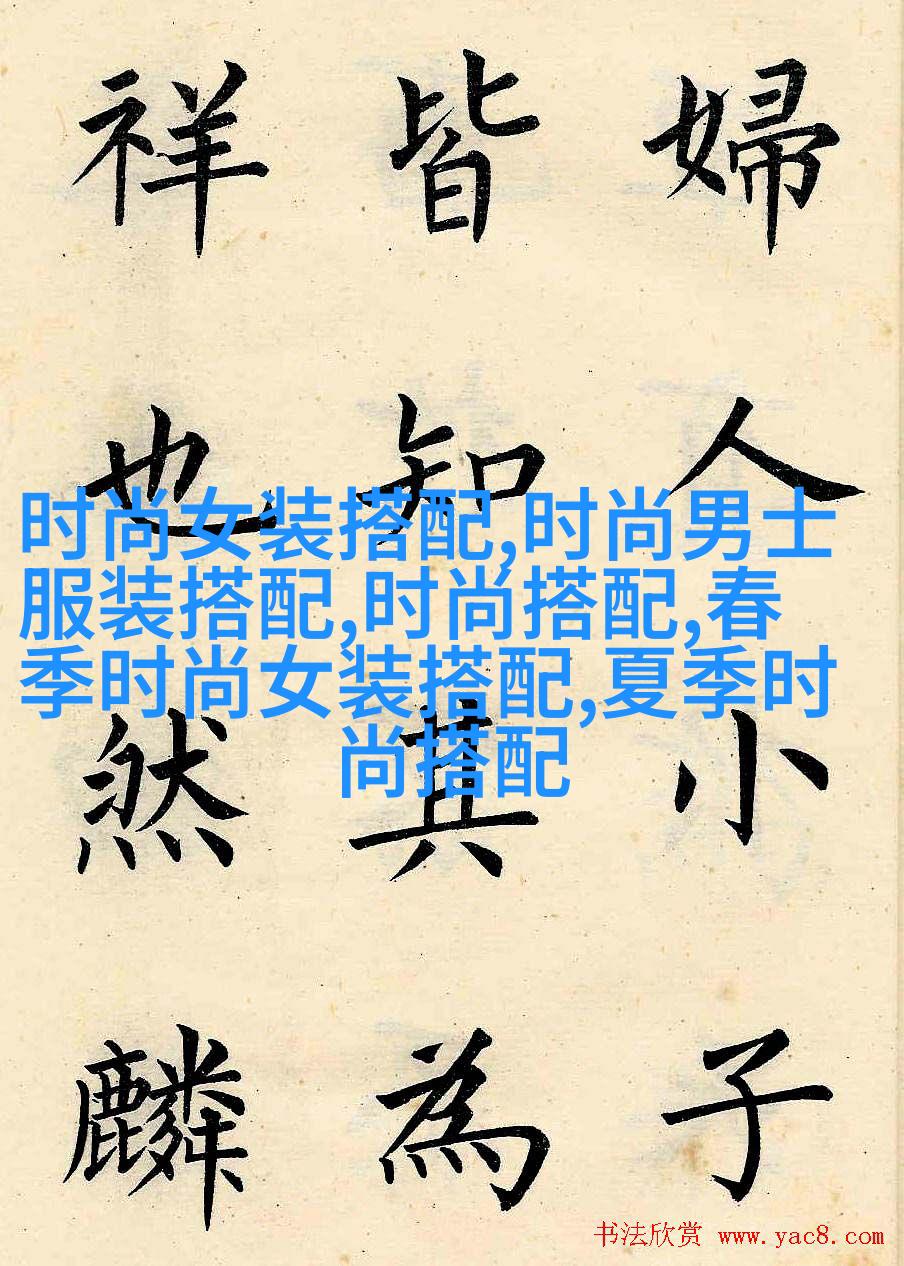 婦人小子
皆知其為
祥也然麟
时尚女装搭配,时尚男士
服装搭配,时尚搭配,春
季时尚女装搭配,夏季时
尚搭配
书法欣赏 www.yac8.com